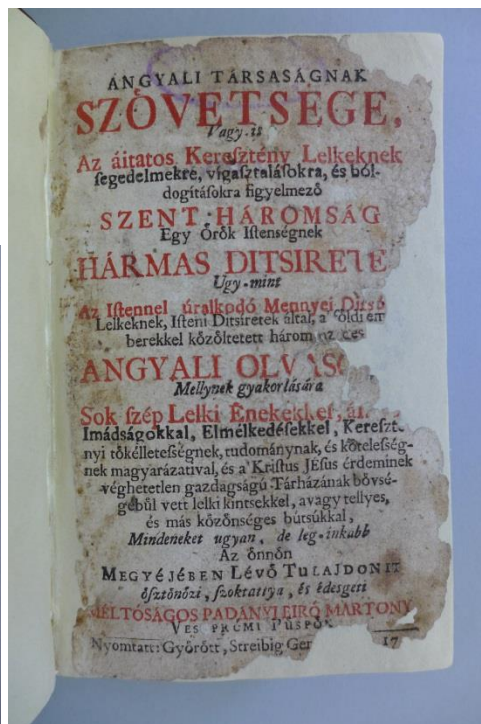 ANGYALI TÁRSASÁGNAK
SZÖVETSÉGE,
Vagy-is
Az áitatos Keresztény Lelkeknek
segedelmekre, vigasztalásokra, és ból-
dogításokra figyelmező
SZENT HÁROMSÁG
Egy Örök Istenségnek
HÁRMAS DITSIRETE
Ugy-mint
Az Istennel úralkodó Mennyei Ditső
Lelkeknek, Isteni Ditsiretek által, a földi em
berekkel közöltetett három
ANGYALI OLVASÓ
Mellynek gyakorlására
Sok szép Lelki Énekekkel,
Imádságokkal, Elmélkedésekkel, Kereszt
nyi tökélletességnek, tudománynak, és kötelesség-
nek magyarázatival, és a' Kristus JÉsus érdeminek
véghetetlen gazdagságú Tárházának bővsé-
géből vett lelki kintsekkel, avagy tellyes,
és más közönséges bútsúkkal,
Mindeneket ugyan, de leg-inkább
Az önnön
MEGYÉJÉBEN LÉVŐ TULAJDONIT
ösztönözi, szoktattya, és édesgeti
MÉLTÓSÁGOS PADÁNYI BIRÓ MÁRTONY
VESPRÉMI PÜSPÖK
Nyomtatt: Győrött, Streibig Ger
17